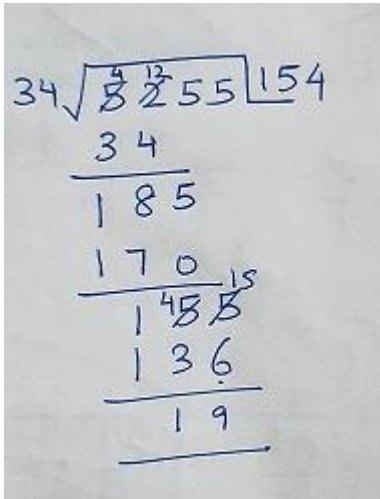 4 12
34 √ 5 2 5 5 154
3 4
1 8 5
1 7 0
15
1 4 5 5
1 3 6
1 9